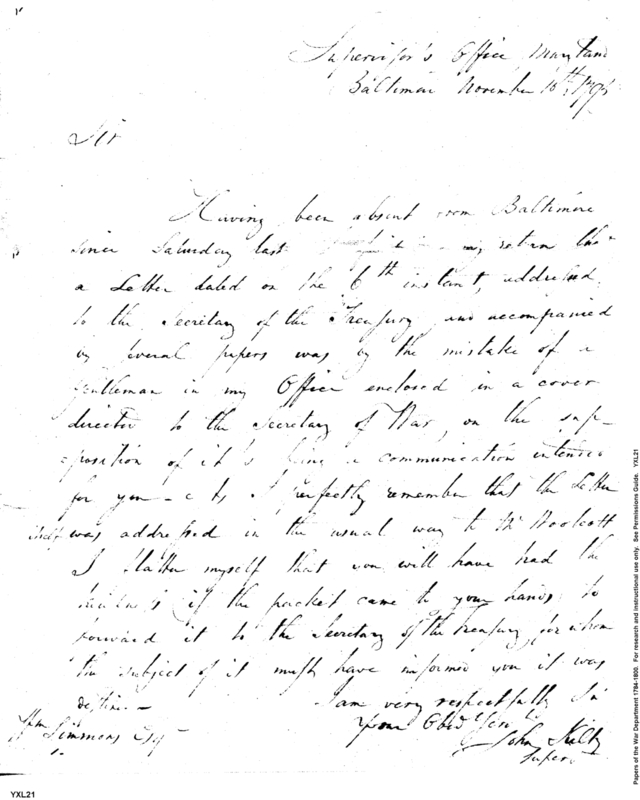 Supervisor's Office Maryland
Baltimore November 10th, 179
Sir
Having been absent from Baltimore
since Saturday last my return that
a Letter dated on the 6th instant, addressed
to the Secretary of the Treasury and accompanied
by several papers was by the mistake of a
Gentleman in my Office enclosed in a cover
directed to the Secretary of War, on the sup-
=position of it's being a communication intended
for you - as I perfectly remember that the Letter
itself was addressed in the usual way to Mr Woolcott
I flatter myself that you will have had the
if the packet came to your hands to
forward it to the Secretary of the Treasury, for whom
the subject of it must have informed you it was
destined - I am very respectfully Sir
Your Obed Serv
Wm Simmons Esqr
John Kilty
Superv
YXL21
Papers of the War Department 1784-1800. For research and instructional use only. See Permissions Guide. YXL21